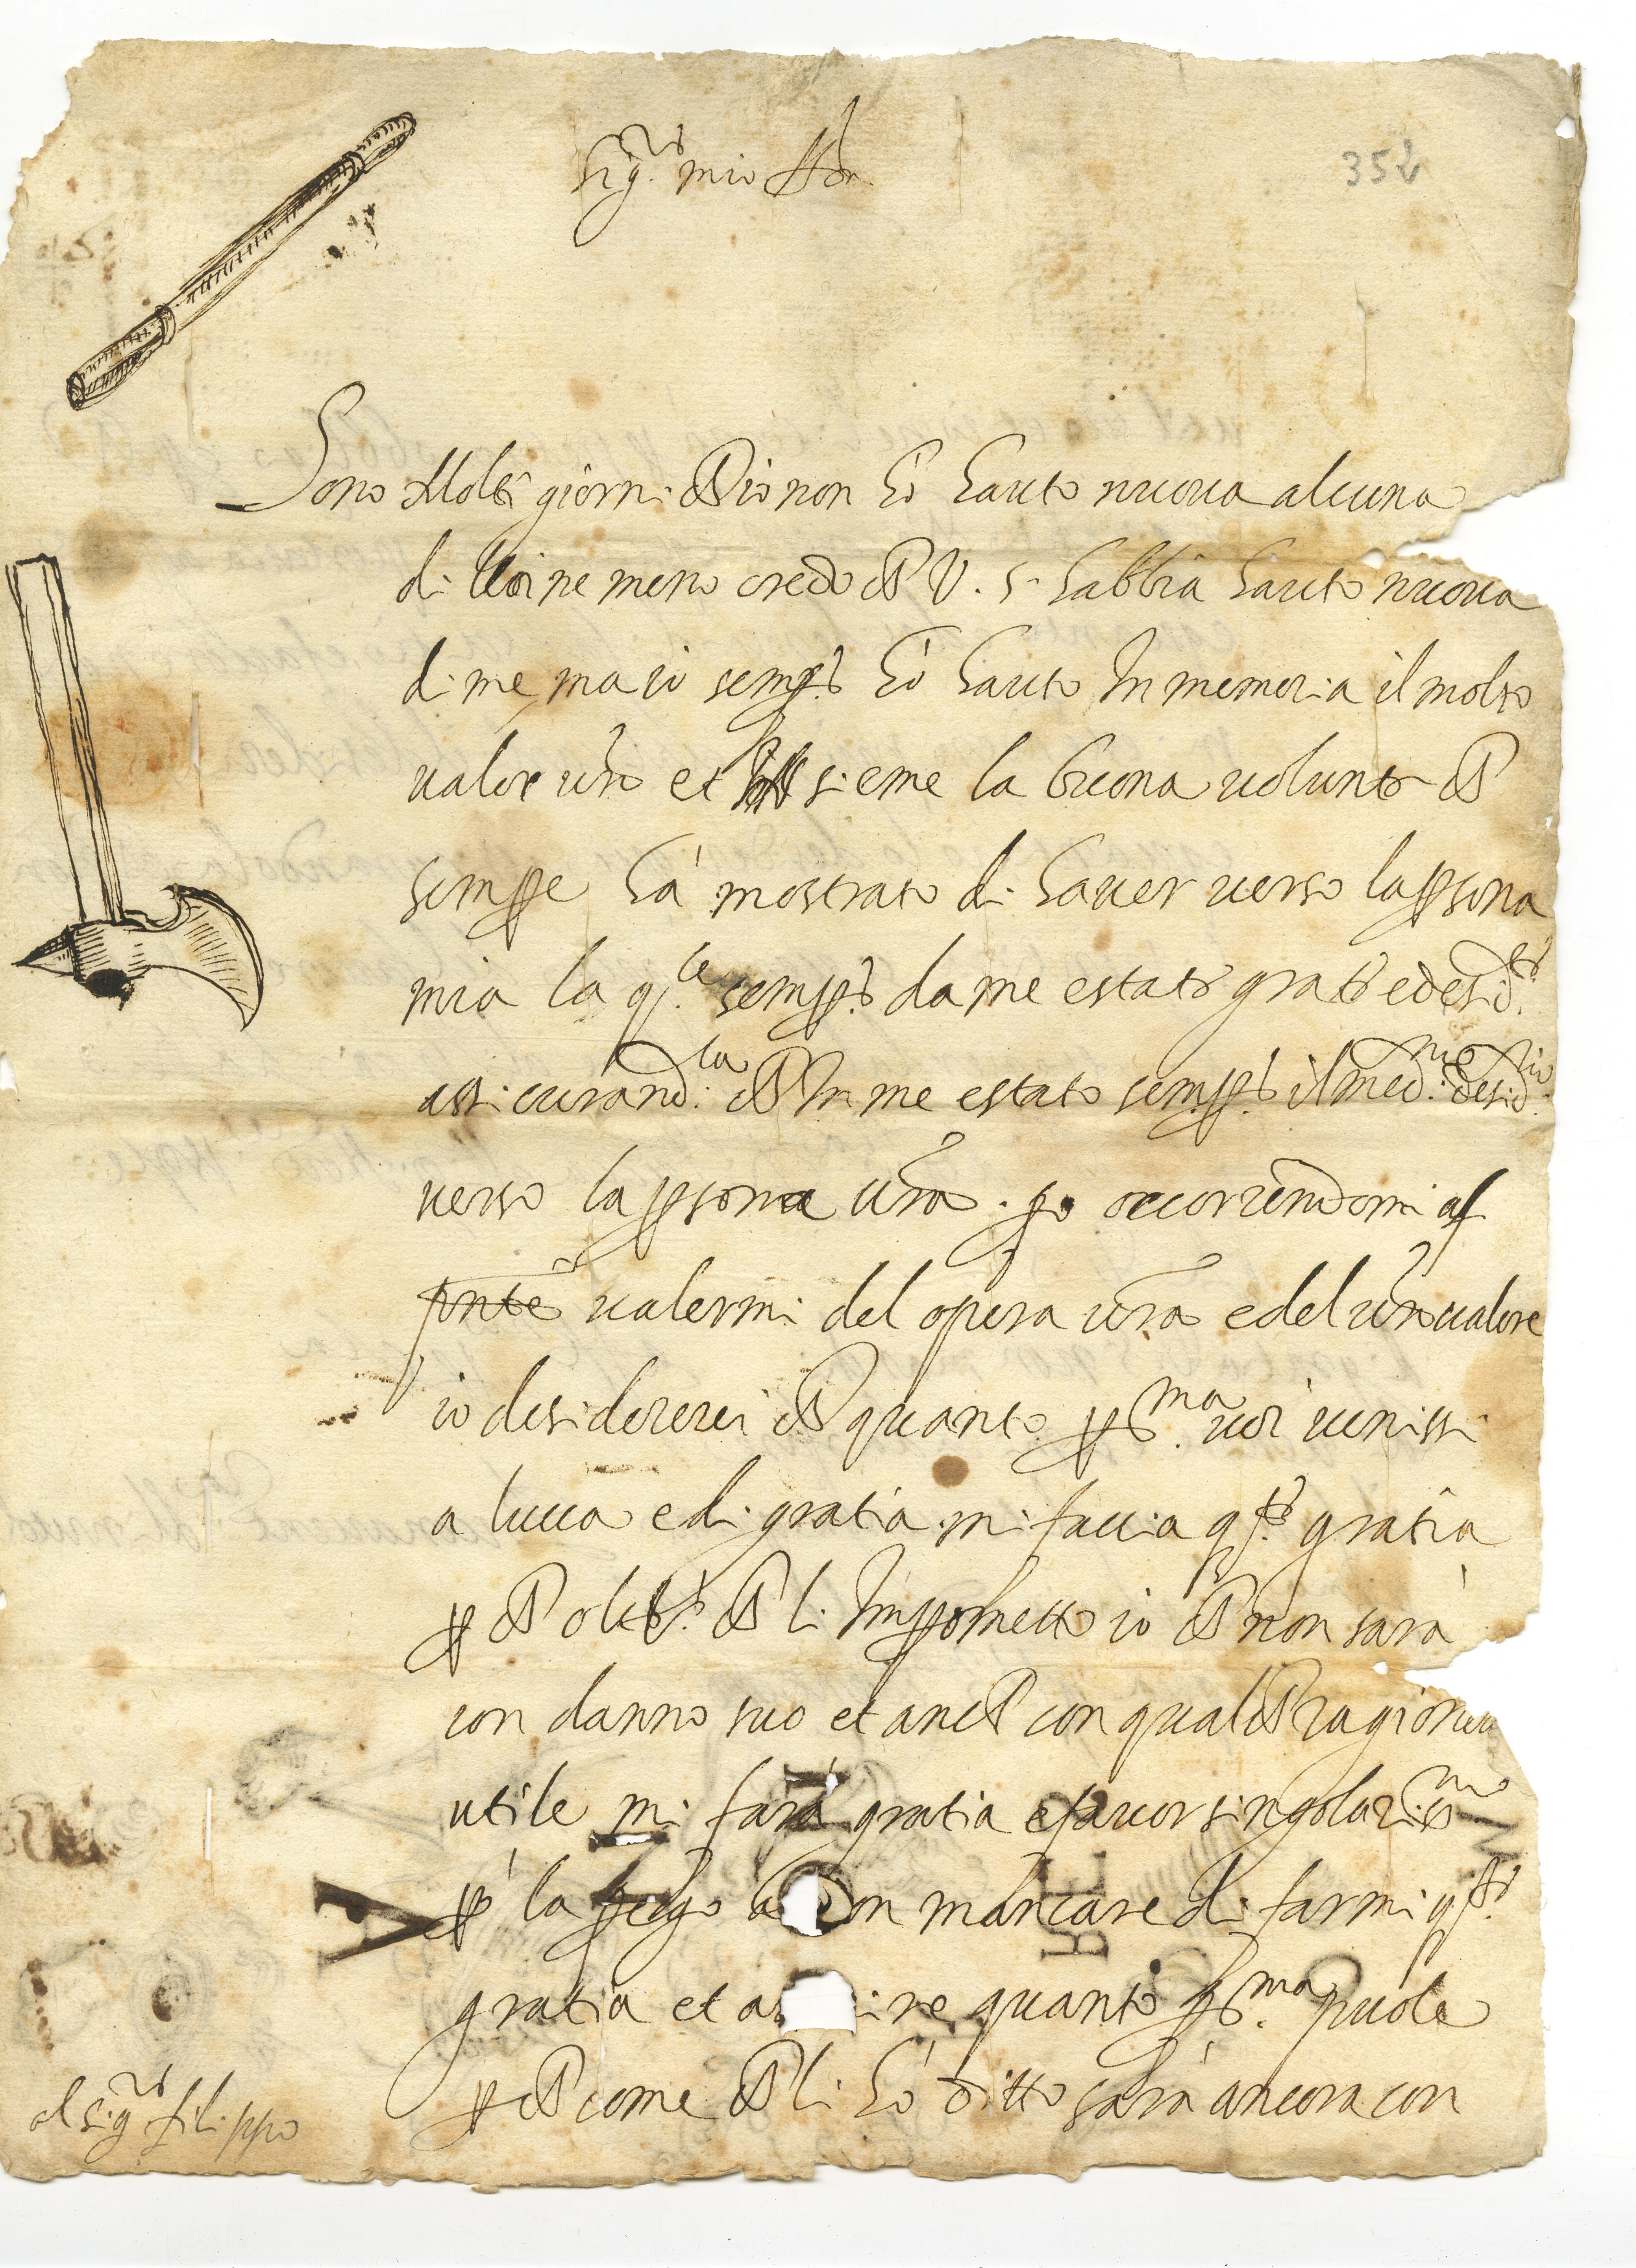 Sig.re mio Hon
352
Sono Molti giorni che io non hò hauto nuova alcuna
di lei ne meno credo che V. S. habbia hauto nuova
di me, ma io semp.e hò hauto In memoria il molto
valor vro et sieme la buona volunta che
sempre hà mostrato di haver verso la psona
mia la q.le semp.e da me estata grata e desid.ta
assicurand.la che In me estato semp.e il med.mo desid.rio
verso la psona vra. po occorrendomi al
pnte valermi del opera vra e del vro valore
io desidererei che quanto p.ma voi venissi
a lucca e di gratia mi faccia q.sta gratia
p che oltre che li Imprometto io che non sarà
con danno suo et anche con qualche ragionev
utile mi farà gratia e favor singolariss.mo
pò la prego a on mancare di farmi q.sta
gratia et as ire quanto p.ma puole
p che come che li hò ditto sarà ancora con
al sig.re filippo